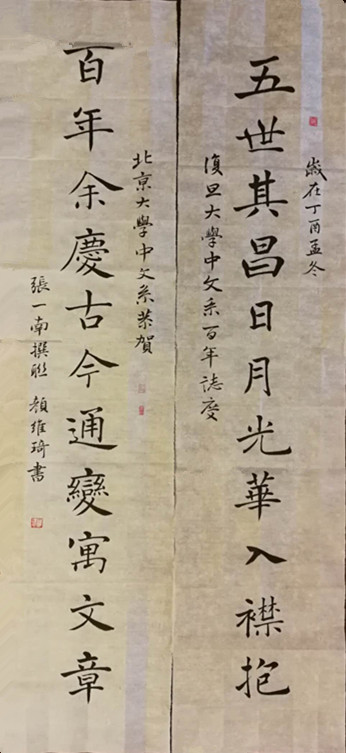 歲在丁酉孟冬
五世其昌日月光華入襟抱
復旦大學中文系百年誌慶
北京大學中文系恭賀
百年余慶古今通變寓文章
張一南撰聯 顏維琦書